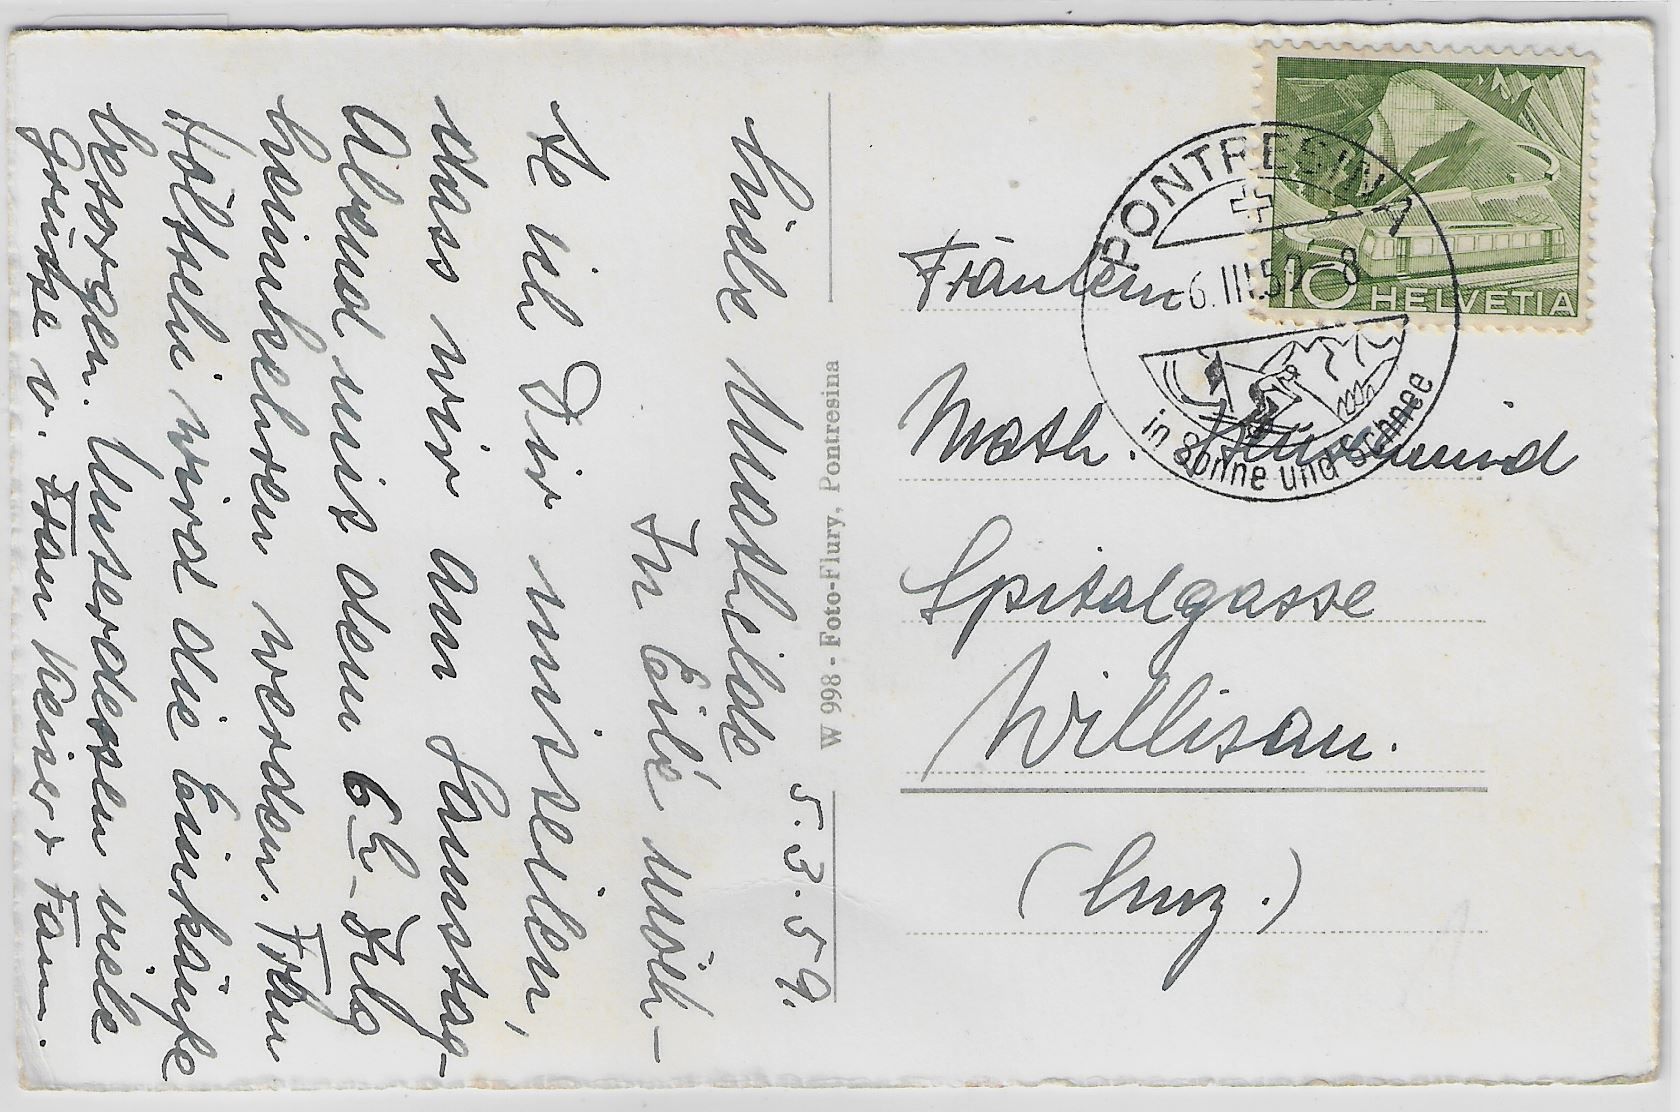 5.3.59.
Liebe Mathilde
In Eile möch-
te ich Dir mitteilen,
dass wir am Samstag-
Abend mit dem 6h-Zug
heimkehren werden. Frau
wird die Einkäufe
besorgen. Unterdessen viele
Grüsse v. Frau Keiser + Fam.
W 998 - Foto-Flury, Pontresina
HELVETIA
10
PONTRESINA
-6.III.59-8
in Sonne und Schnee
Fräulein
Math.
Spitalgasse
Willisau.
(Luz.)